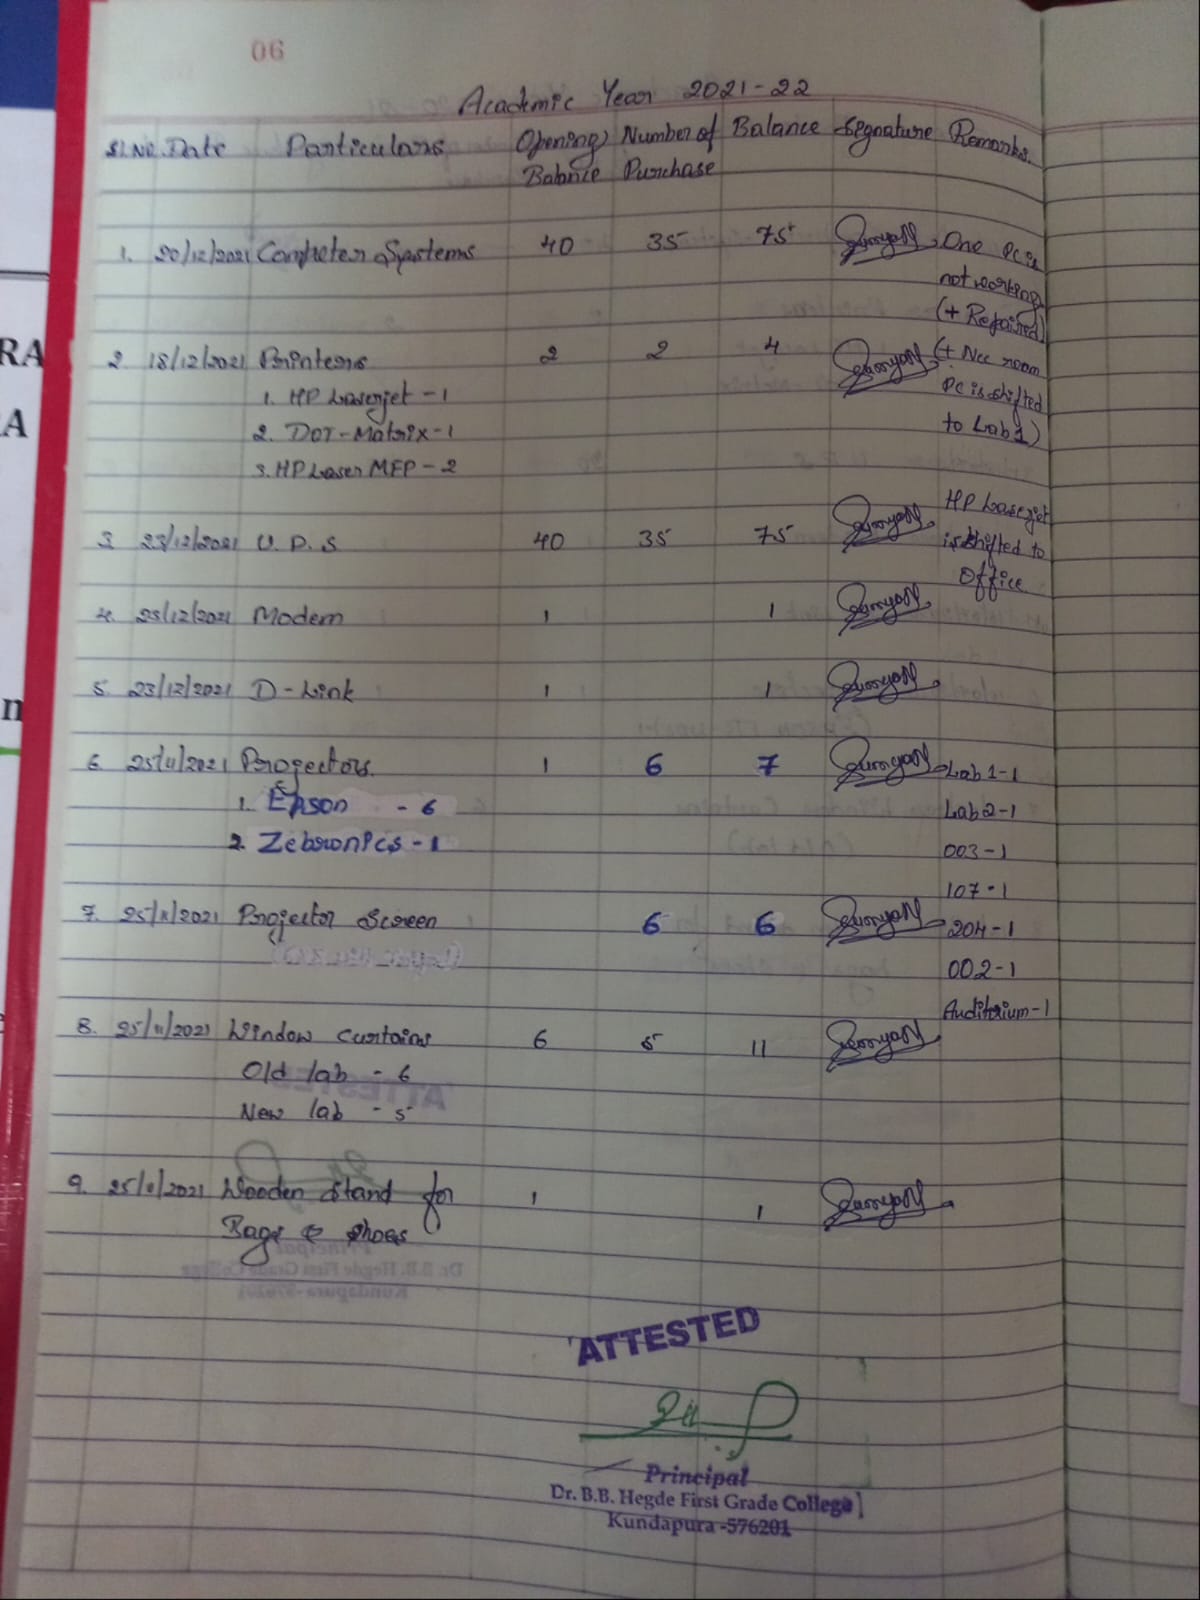 06
Academic Year 2021-22
Sl.No. Date Particulars Opening Number of Balance Signature Remarks.
Balance Purchase
1. 20/12/2021 Computer Systems 40 35 75 One PC is
not working
(+ Repaired)
2. 18/12/2021 Printers 2 2 4 (+ Ncc room
1. HP Laserjet - 1 PC is shifted
2. DOT-Matrix - 1 to Lab 1)
3. HP Laser MFP - 2
HP Laserjet
3. 23/12/2021 U.P.S 40 35 75 is shifted to
Office
4. 23/12/2021 Modem 1 1
5. 23/12/2021 D-Link 1 1
6. 25/11/2021 Projectors. 1 6 7 Lab 1-1
1. Epson - 6 Lab 2-1
2. Zebronics - 1 003-1
107-1
7. 25/11/2021 Projector Screen 6 6 204-1
002-1
Auditorium-1
8. 25/11/2021 Window Curtains 6 5 11
Old lab - 6
New lab - 5
9. 25/11/2021 Wooden Stand for 1 1
Bags & Shoes
ATTESTED
Principal
Dr. B.B. Hegde First Grade College
Kundapura -576201
RA
A